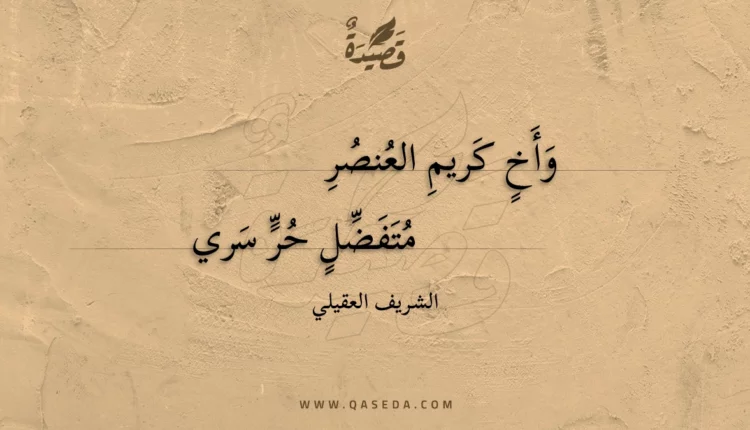 قَصِيدَةٌ
وَأَخٍ كَريمِ العُنصُرِ
مُتَفَضِّلٍ حُرٍّ سَري
الشريف العقيلي
WWW.QASEDA.COM